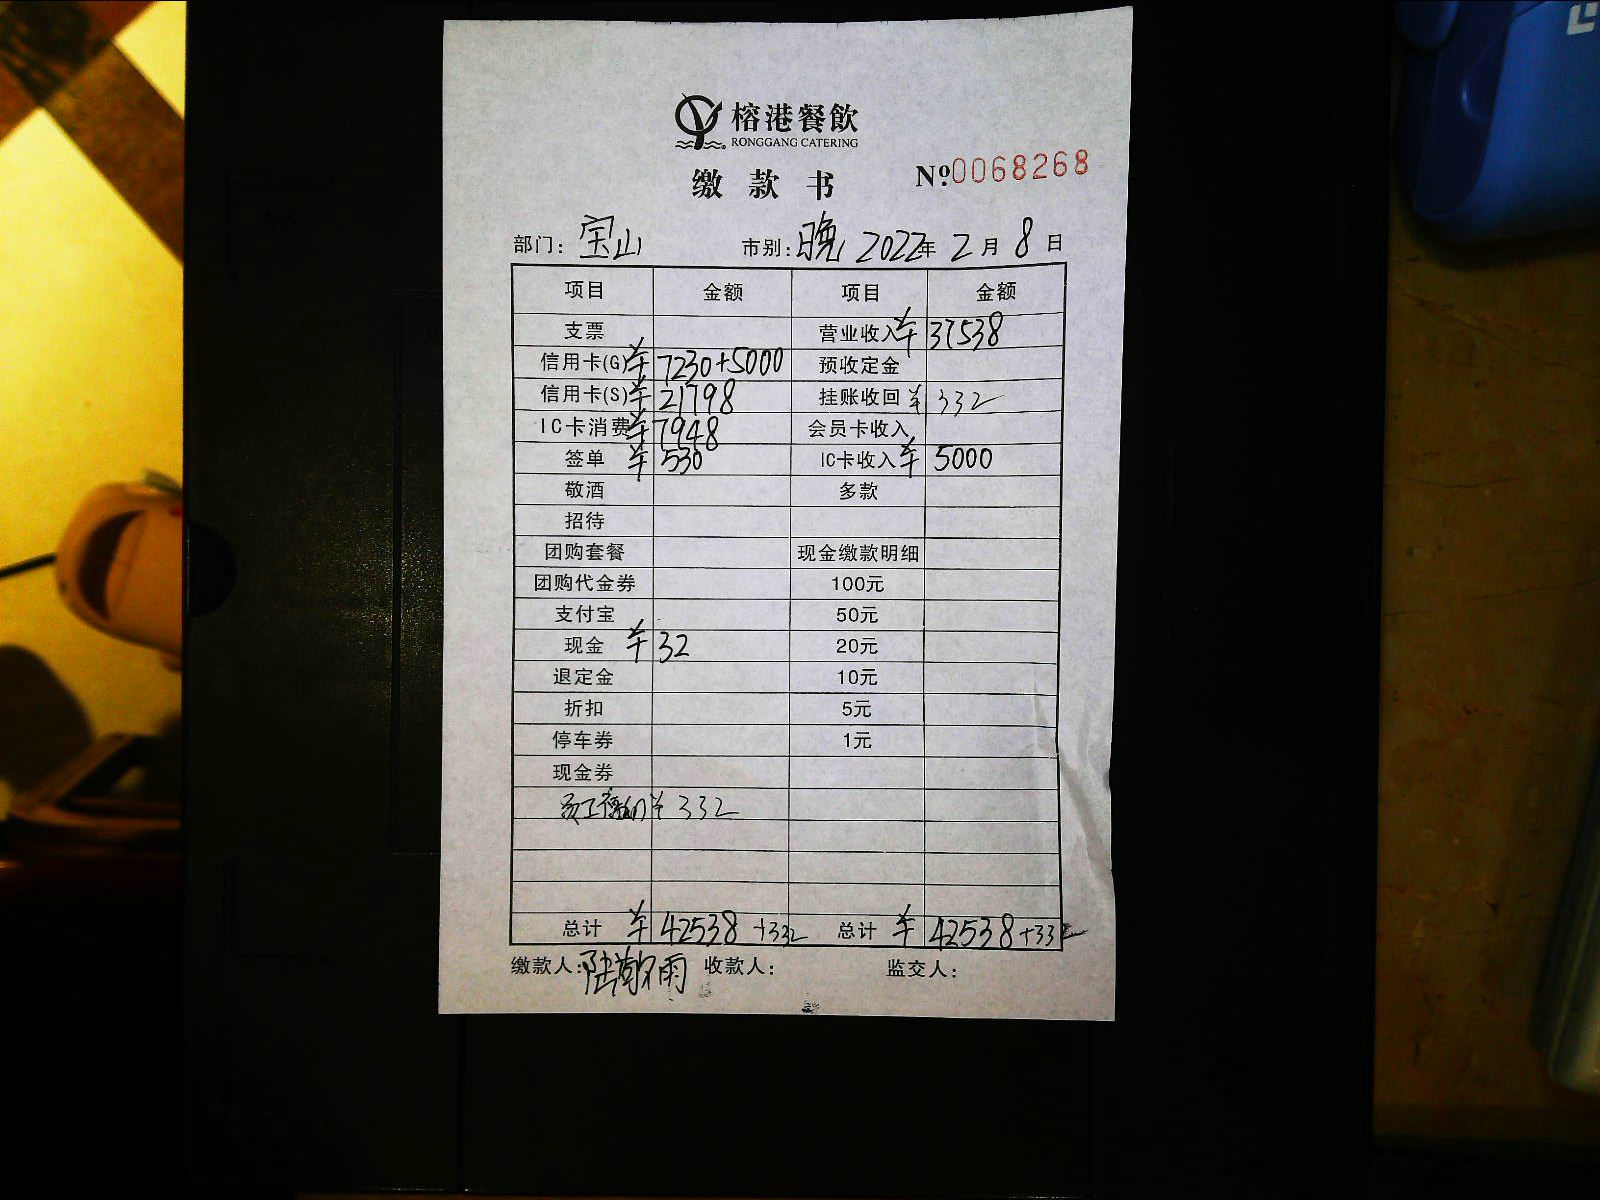 榕港餐飲
RONGGANG CATERING
缴款书 №.0068268
部门: 宝山 市别: 晚 2022年 2月 8日
项目 金额 项目 金额
支票 营业收入 ¥ 37538
信用卡(G) ¥ 7230+5000 预收定金
信用卡(S) ¥ 21798 挂账收回 ¥ 332
IC卡消费 ¥ 7948 会员卡收入
签单 ¥ 530 IC卡收入 ¥ 5000
敬酒 多款
招待
团购套餐 现金缴款明细
团购代金券 100元
支付宝 50元
现金 ¥ 32 20元
退定金 10元
折扣 5元
停车券 1元
现金券
员工 ¥ 332
总计 ¥ 42538 +332 总计 ¥ 42538+332
缴款人: 陆 雨 收款人: 监交人: